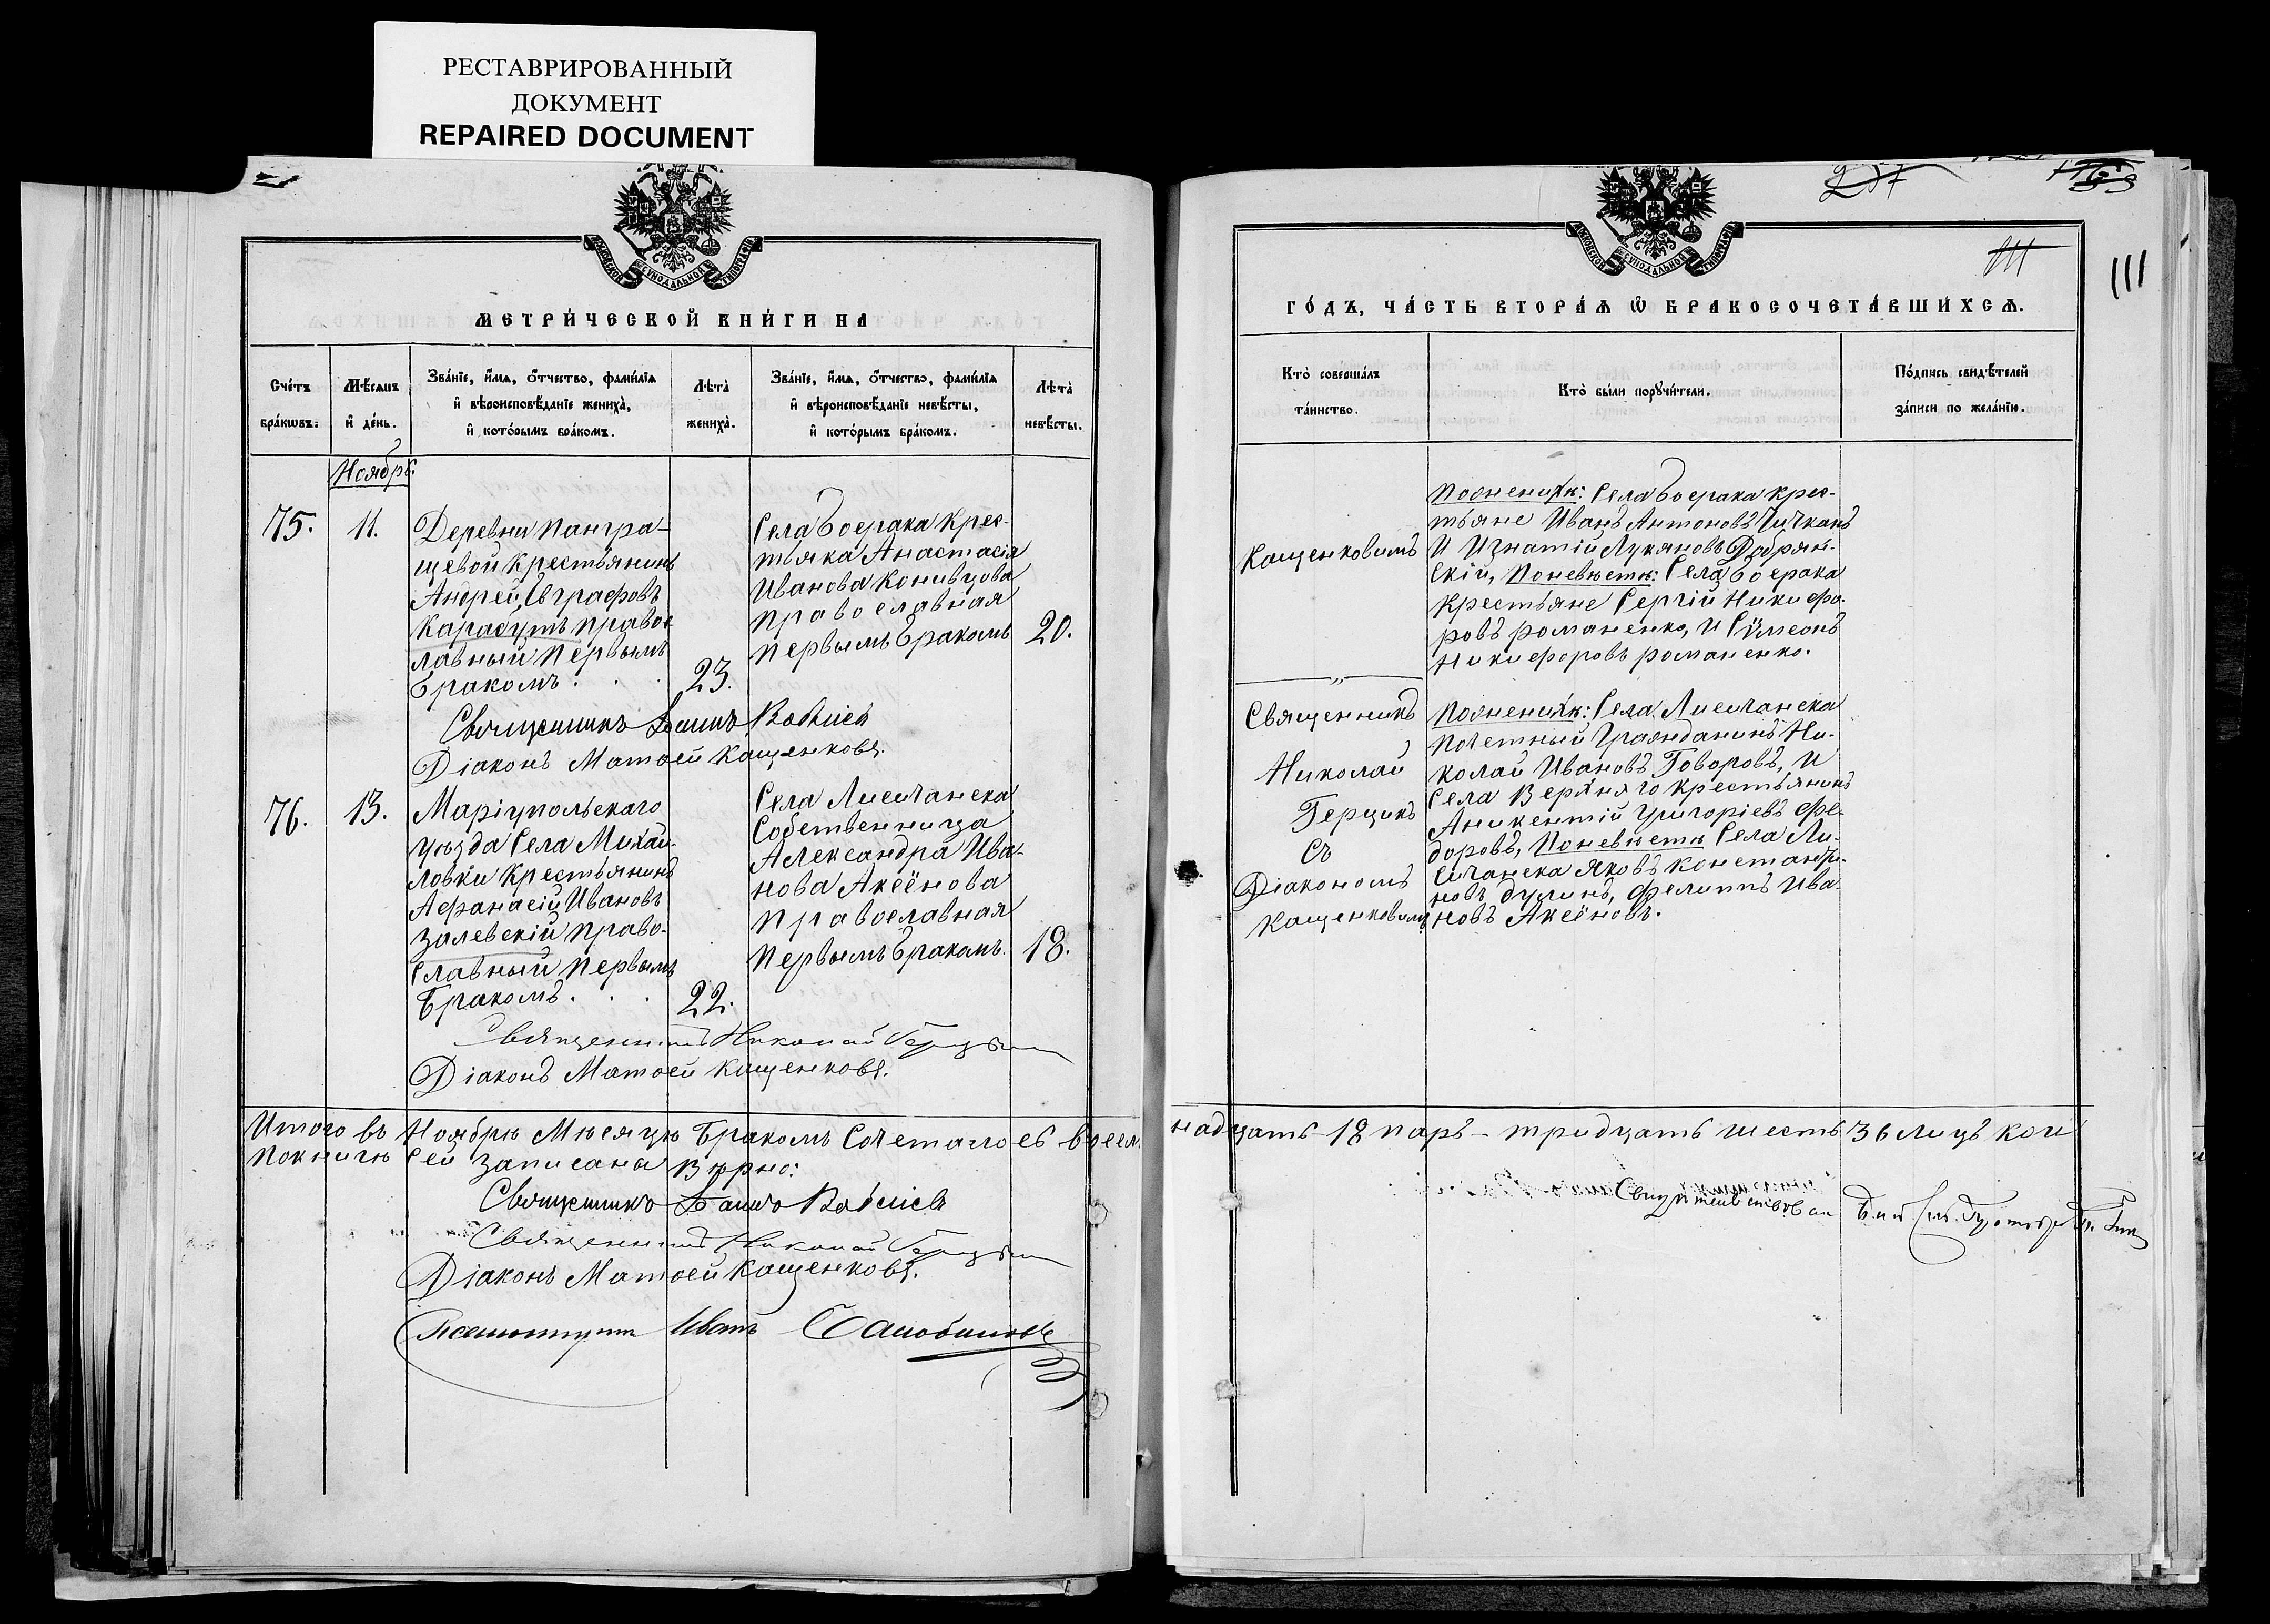 РЕСТАВРИРОВАННЫЙ
ДОКУМЕНТ
REPAIRED DOCUMENT
МОСКОВСКОЙ СѴНОДАЛЬНОЙ ТИПОГРАФІИ
МЕТРИ́ЧЕСКОЙ КНИ́ГИ НА
Сче́тъ бра́кωвъ.
Мѣ́сяцъ и҆ де́нь.
Зва́нїе, и҆́мѧ, ѻ҆́тчество, фами́лїѧ
и҆ вѣроисповѣ́данїе жениха̀,
и҆ кото́рымъ бра́комъ.
Лѣта̀ жениха̀.
Зва́нїе, и҆́мѧ, ѻ҆́тчество, фами́лїѧ
и҆ вѣроисповѣ́данїе невѣ́сты,
и҆ кото́рымъ бра́комъ.
Лѣта̀ невѣ́сты.
Ноябрь.
75.
11.
Деревни Панкра-
щевой Крестьянинъ
Андрей Евграфовъ
Карабутъ правос
лавный Первымъ
Бракомъ . . .
23.
Села Боерака Крес-
тьянка Анастасія
Иванова Конивцова
Православная
Первымъ Бракомъ
20.
Священникъ
Діаконъ Матѳей Кащенковъ.
76.
13.
Маріупольскаго
уѣзда Села Михай-
ловки Крестьянинъ
Афанасій Ивановъ
Залевскій Право-
Славный Первымъ
Бракомъ . . .
22.
Села Лисичанска
Собственница
Александра Ива-
нова Аксёнова
Православная
Первымъ Бракомъ.
18.
Священникъ Николай Герцыкъ
Діаконъ Матѳей Кащенковъ.
Итого въ Ноябрѣ Мѣсяцѣ Бракомъ Сочеталось – восем
По книгѣ Сей Записаны Вѣрно:
Священникъ
Священникъ Николай Герцыкъ
Діаконъ Матѳей Кащенковъ.
Иванъ
257
111
111
МОСКОВСКОЙ СѴНОДАЛЬНОЙ ТИПОГРАФІИ
ГО́ДЪ, ЧА́СТЬ ВТОРА́Ѧ Ѡ҆ БРАКОСОЧЕТА́ВШИХСѦ.
Кто̀ соверша́лъ
та́инство.
Кто̀ бы́ли порꙋчи́тели.
По́дпись свидѣ́телей
за́писи по жела́нїю.
Кащенковымъ
По женихѣ: Села Боерака Крес-
тьяне Иванъ Антоновъ Чичканъ
И Игнатій Лукяновъ Добрян-
скій, По невѣстѣ: Села Боерака
Крестьяне Сергій Никифо-
ровъ романенко, И Сѵмеонъ
Никифоровъ романенко.
Священникъ
Николай
Герцыкъ
Съ
Діакономъ
Кащенковымъ
По женихѣ: Села Лисичанска
Почетный Гражданинъ Ни-
колай Ивановъ Говоровъ, И
Села Верхняго Крестьянинъ
Аникентій Григоріевъ Фе-
доровъ, По невѣстѣ Села Ли-
сичанска Яковъ Константи-
новъ Дулинъ, Филиппъ Ива-
новъ Аксёновъ.
надцать – 18 паръ – тридцать шесть 36 лицъ кои